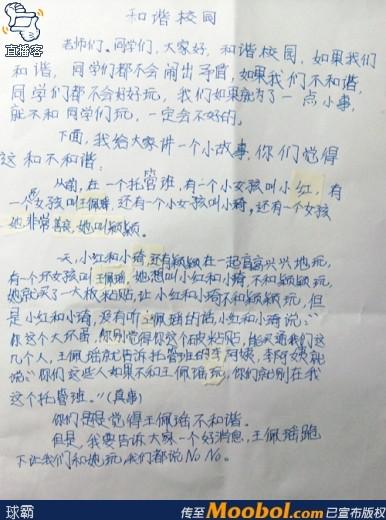 直播客
和谐校园
老师们。同学们,大家好,和谐校园,如果我们
和谐,同学们都不会闹出矛盾,如果我们不和谐,
同学们都不会好好玩,我们如果就为了一点小事,
就不和同学们玩,一定会不好的。
下面,我给大家讲一个小故事,你们觉得
这和不和谐:
从前,在一个托管班,有一个小女孩叫小红,有
一个女孩叫王佩瑶,还有一个小女孩叫小琦,还有一个女孩
她非常善良,她叫颖颖。
一天,小红和小琦,还有颖颖在一起高高兴兴地玩,
有一个坏女孩叫王佩瑶,她想叫小红和小琦,不和颖颖玩,
她就买了一大板粘贴,让小红和小琦不和颖颖玩,但
是小红和小琦,没有听王佩瑶的话,小红和小琦说:“
你这个大坏蛋,你别觉得你这个破粘贴,能买通我们这
几个人,王佩瑶就告诉托管班的李阿姨,李阿姨就
说:“你们这些人如果不和王佩瑶玩,你们就别在我
这个托管班。”(真事)
你们是觉得王佩瑶不和谐。
但是,我要告诉大家一个好消息,王佩瑶跪
下让我们和她玩,我们都说No No。
球霸
传至Moobol.com已宣布版权